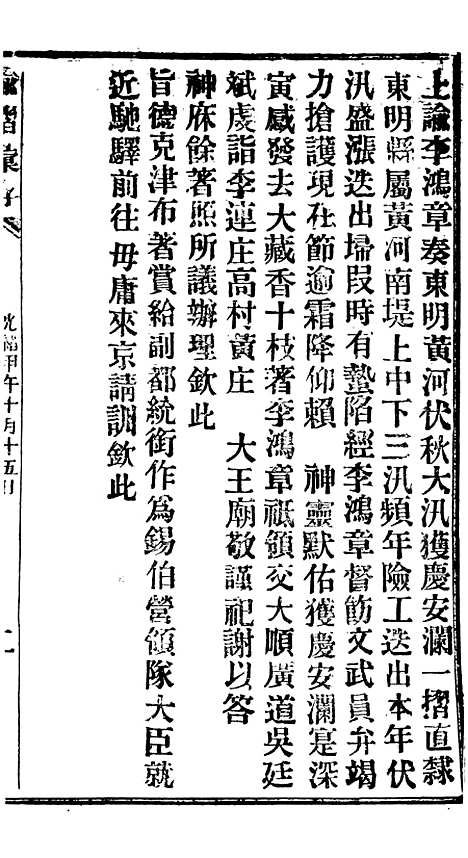 上諭李鴻章奏東明黃河伏秋大汛獲慶安瀾一摺直隸
東明縣屬黃河南堤上中下三汛頻年險工迭出本年伏
汛盛漲迭出埽段時有蟄陷經李鴻章督飭文武員弁竭
力搶護現在節逾霜降仰賴 神靈默佑獲慶安瀾寔深
寅感發去大藏香十枝著李鴻章祗領交大順廣道吳廷
斌虔詣李連庄高村黃庄 大王廟敬謹祀謝以答
神庥餘著照所議辦理欽此
旨德克津布著賞給副都統銜作爲錫伯營領隊大臣就
近馳驛前往毋庸來京請訓欽此
諭摺彙存
光緒甲午十月十五日